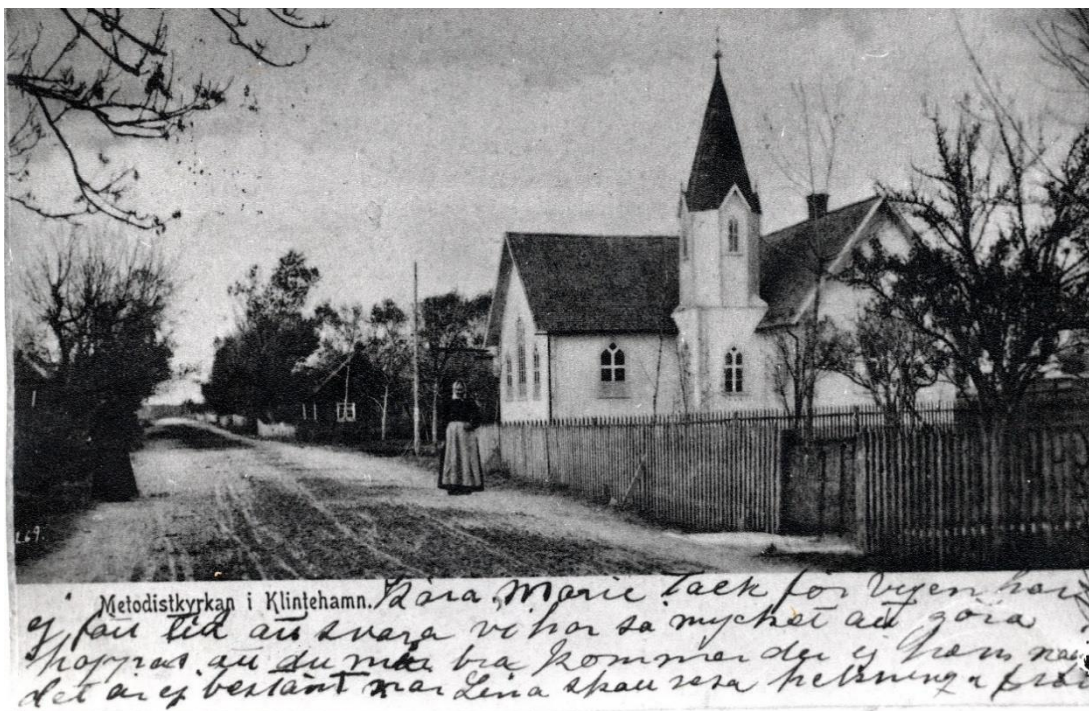 269.
Metodistkyrkan i Klintehamn. Kära Marie tack för vyen har
ej fått tid att svara vi har så mycket att göra
hoppas att du mår bra kommer du ej hem
det är ej bestänt när Lina skall resa helsning